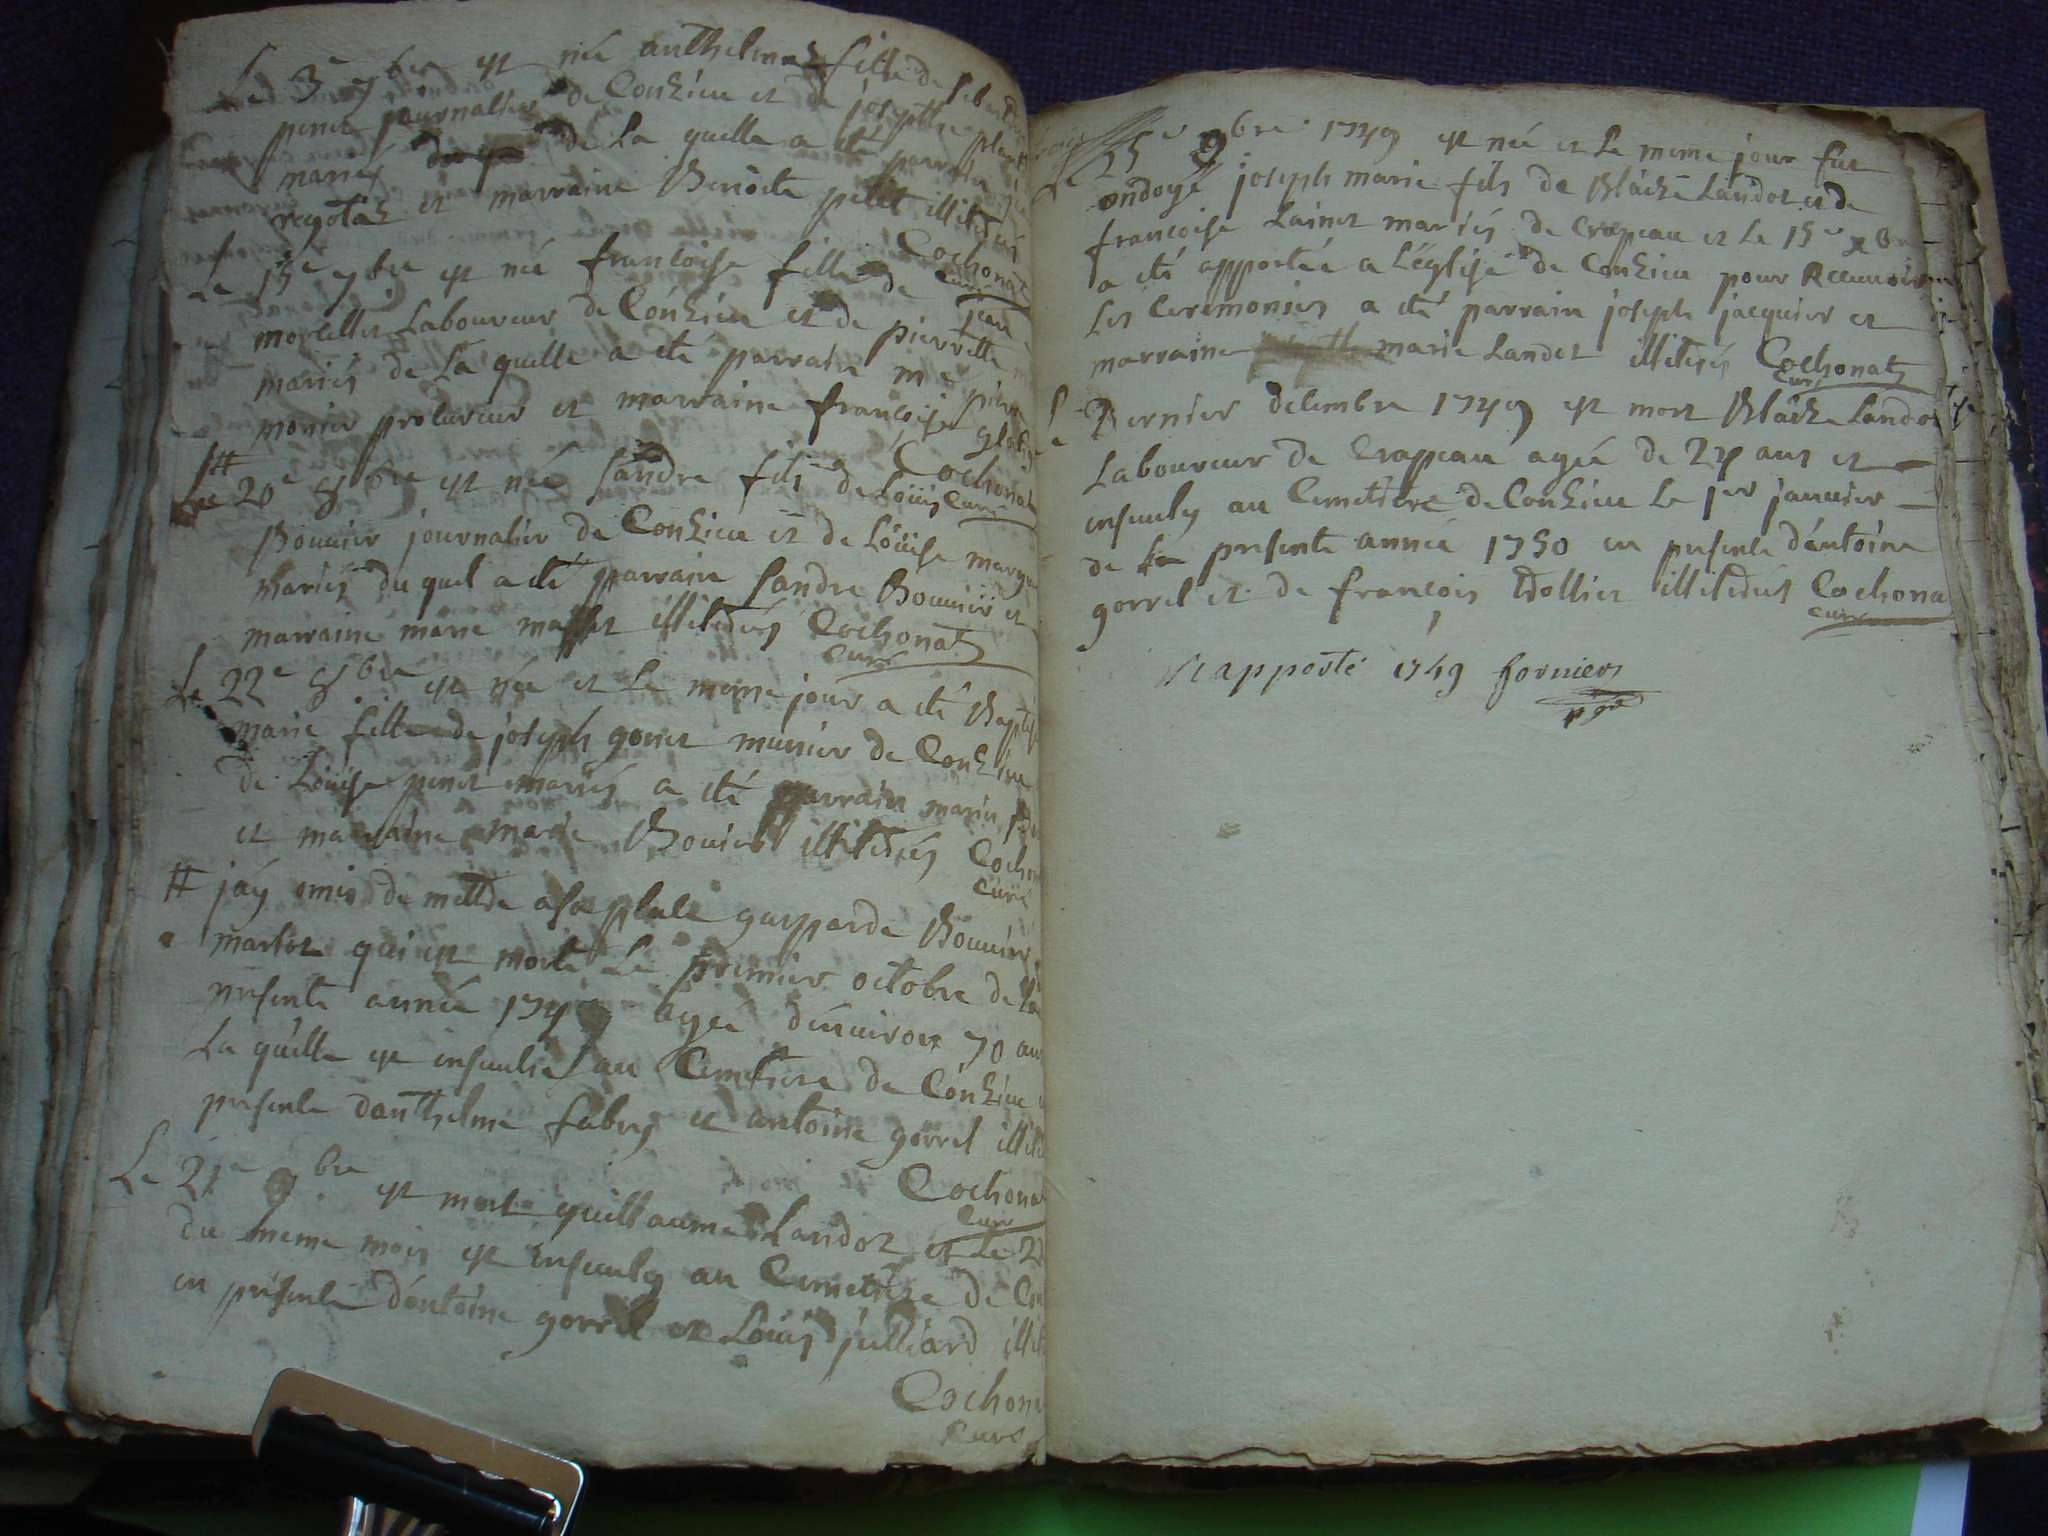 Le 3e 7bre est née anthelmaz fille de Sebastien
penet journallier de Conzieu et de josepthe
mariés de La quelle a été parrain
regotaz et marraine Benoite petit illiterés
Cochonat
curé
Le 15e 7bre est née francoise fille de jean
morellet Laboureur de Conzieu et de pierrette
mariés de La quelle a été parrain me pierre
monier procureur et marraine francoise
Cochonat
curé
#
Le 20e 8bre est née Sandre fils de Loüis
Bouvier journalier de Conzieu et de Loüise
mariés du quel a été parrain Sandre Bouvier et
marraine marie masset illiterés Cochonat
curé
Le 22e 8bre est née et Le meme jour a été Baptisé
marie fille de joseph gonet munier de Conzieu
de Loüise penet mariés a été parrain marin
et marraine marie Bouvier illiterés Cochon
curé
# j'ay omis de mettre a sa place gasparde Bouvier
martoz qui est morte Le premier octobre de La
presente année 1749 agée d'environ 70 ans
La quelle est insevelie au Cemetiere de Conzieu
presence d'anthelme fabry et antoine gorrel illite
Cochona
curé
Le 21e 9bre est mort guillaume Landoz et Le 22
du meme mois est insevely au Cemetiere de Con
en presence d'antoine gorrel et Loüis julliard illite
Cochon
curé
Le 25e 9bre 1749 est née et Le meme jour fut
ondoyé joseph marie fils de Blaize Landoz et de
francoise Lainet mariés de Crapeau et Le 15e xbre
a été apportée a L'église de Conzieu pour Recevoir
Les Ceremonies a été parrain joseph jacquier et
marraine marie Landoz illiterés Cochonat
curé
Le Dernier decembre 1749 est mort Blaize Landoz
Laboureur de Crapeau agée de 27 ans et
insevely au Cemetiere de Conzieu Le 1er janvier
de La presente année 1750 en presence d'antoine
gorrel et de francois Dollier illiterés Cochona
curé
Rapporté 1749 forniers